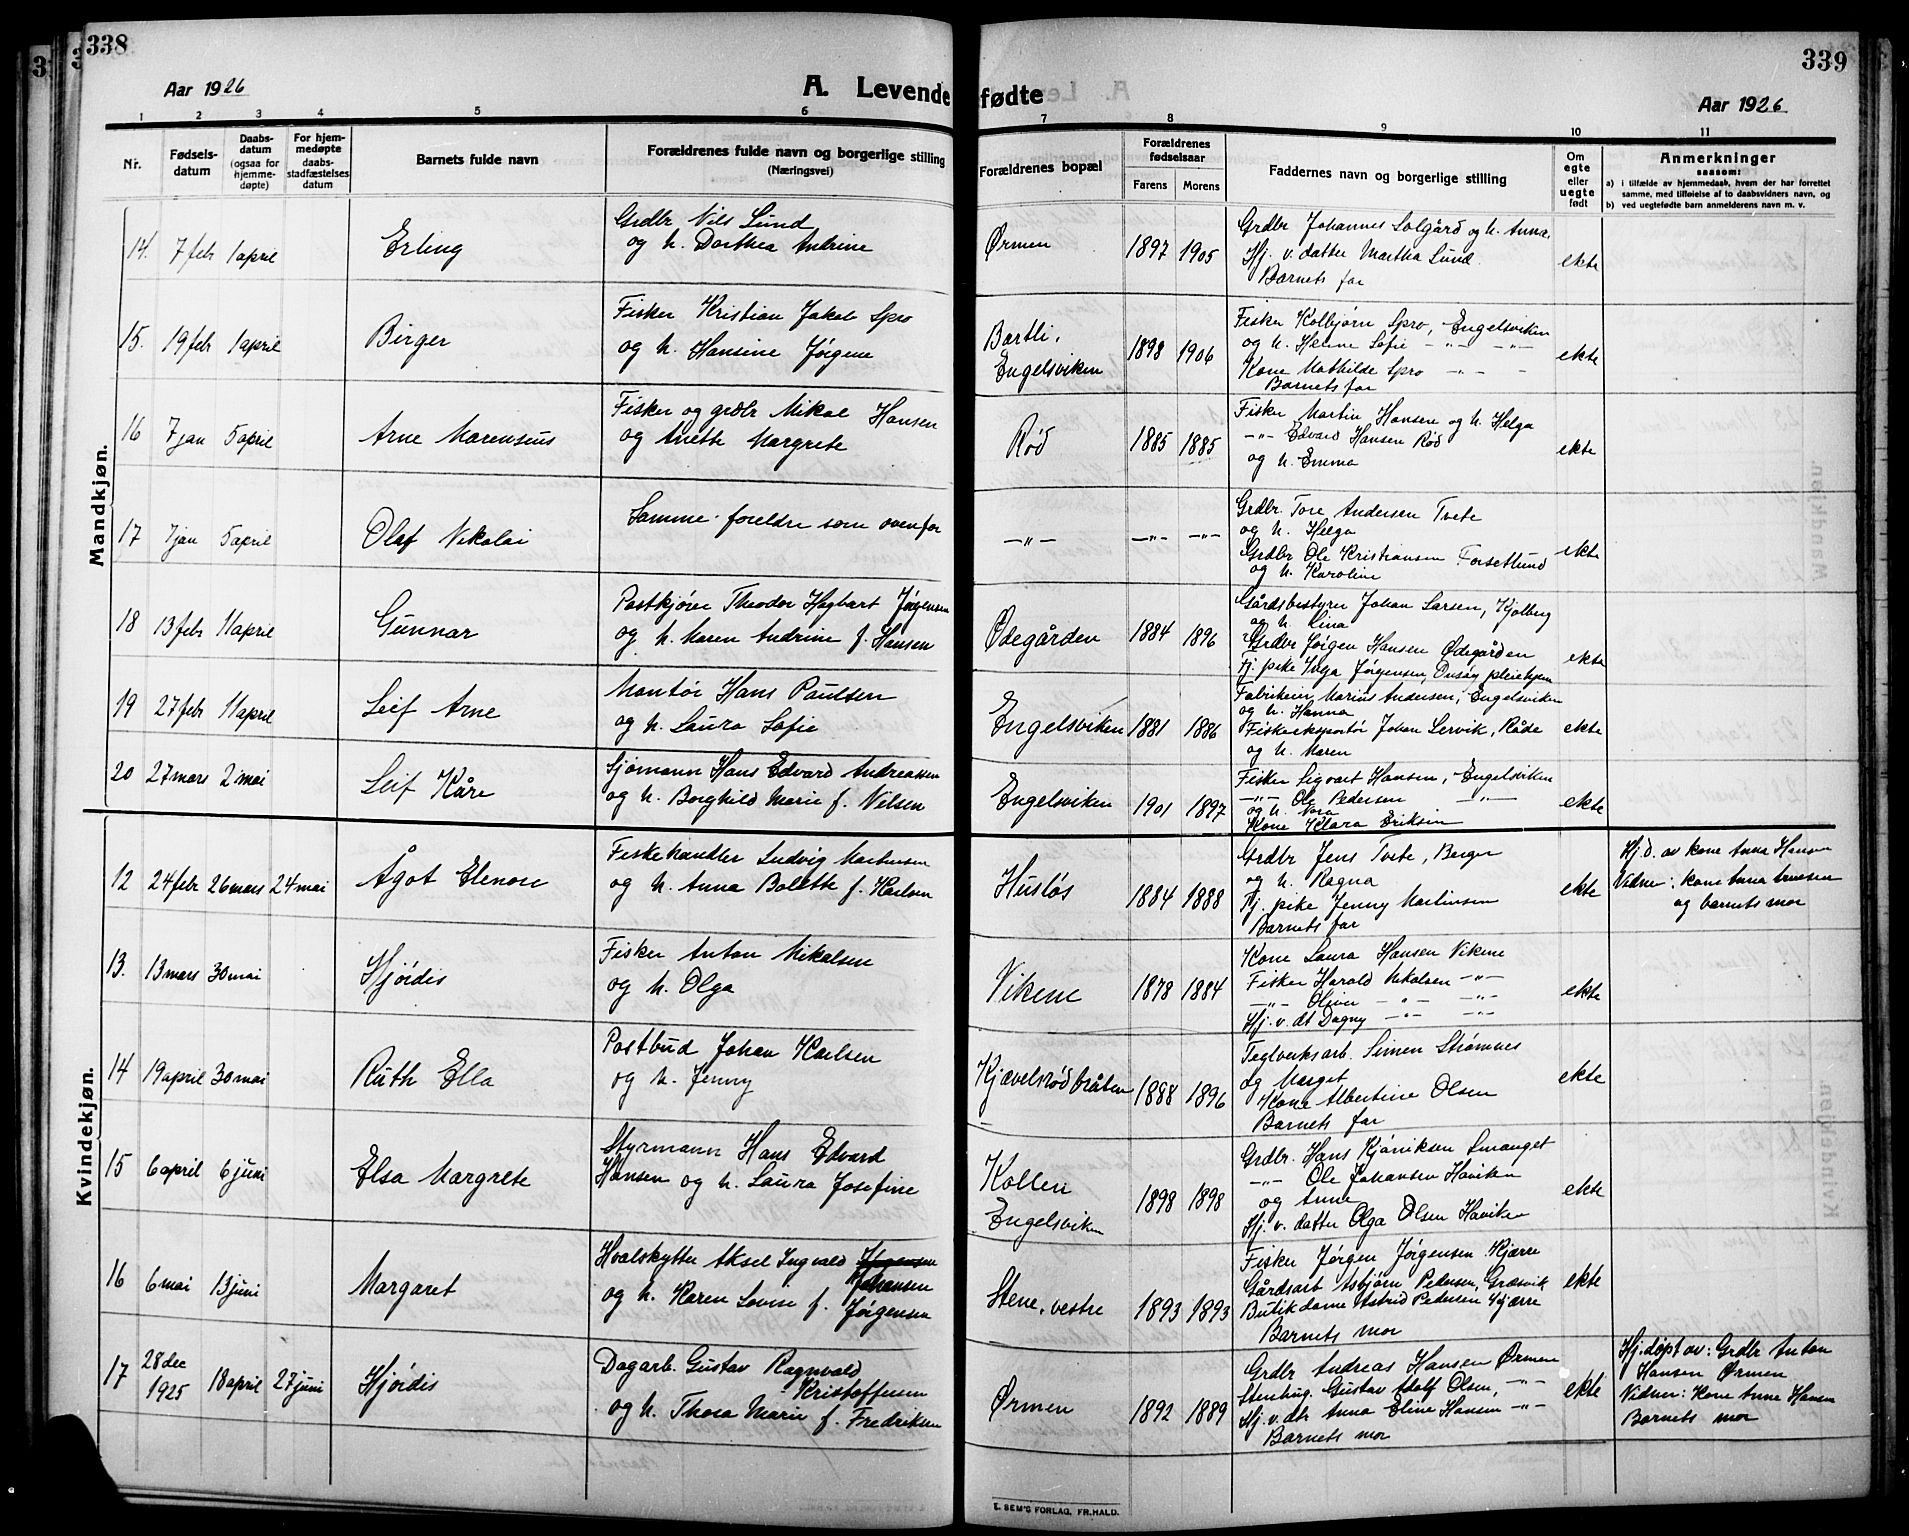 338
Aar 1926
A. Levende
1 2 3 4 5 6
Nr.
Fødsels-
datum
Daabs-
datum
(ogsaa for
hjemme-
døpte)
For hjem-
medøpte
daabs-
stadfæstelses
datum
Barnets fulde navn
Forældrenes fulde navn og borgerlige stilling
(Næringsvei)
Mandkjøn.
14. 7 febr 1 april Erling
Grdbr Nils Lund
og h. Dorthea Andrine
15. 19 febr 1 april Birger
Fisker Kristian Jakob Spro
og h. Hansine Jørgene
16 7 jan 5 april Arne Marensius
Fisker og grdbr Mikal Hansen
og Anette Margrete
17 7 jan 5 april Olaf Nikolai
Samme foreldre som ovenfor
18 13 febr 11 april Gunnar
Postkjører Theodor Hagbart Jørgensen
og h. Maren Andrine f. Hansen
19 27 febr 11 april Leif Arne
Montør Hans Paulsen
og h. Laura Sofie
20 27 mars 2 mai Leif Kåre
Sjømann Hans Edvard Andreassen
og h. Borghild Marie f. Nilsen
Kvindekjøn.
12 24 febr 26 mars 24 mai Ågot Elenore
Fiskehandler Ludvig Martinsen
og h. Anna Bolette f. Karlsen
13. 13 mars 30 mai Hjørdis
Fisker Anton Mikalsen
og h. Olga
14 19 april 30 mai Ruth Ella
Postbud Johan Karlsen
og h. Jenny
15 6 april 6 juni Elsa Margrete
Styrmann Hans Edvard
Hansen og h. Laura Josefine
16 6 mai 13 juni Margaret
Hvalskytter Aksel Ingvald
Johansen
og h. Karen Lovise f. Jørgensen
17 28 dec
1925 18 april 27 juni Hjørdis
Dagarb. Gustav Ragnvald
Kristoffersen
og h. Thora Marie f. Fredriksen
339
fødte
Aar 1926
7 8 9 10 11
Forældrenes bopæl
Forældrenes
fødselsaar
Farens Morens
Faddernes navn og borgerlige stilling
Om
egte
eller
uegte
født
Anmerkninger
saasom:
a) i tilfælde av hjemmedaab, hvem der har forrettet
samme, med tilføielse af to daabsvidners navn, og
b) ved uegtefødte barn anmelderens navn m. v.
Ørmen 1897 1905 ekte
Grdbr Johannes Solgård og h. Anna.
Hj. v. datter Martha Lund.
Barnets far
Bartli,
Engelsviken 1898 1906 ekte
Fisker Kolbjørn Spro, Engelsviken
og h. Hanne Sofie -„- -„-
Kone Mathilde Spro -„- -
Barnets far
Rød 1885 1885 ekte
Fisker Martin Hansen og h. Helga
-„- Edvard Hansen Rød
og h. Emma
-„- -„- -„- ekte
Grdbr. Tore Andersen Tvete
og h. Helga
Grdbr Ole Kristiansen Forsetlund
og h. Karoline
Ødegården 1884 1896 ekte
Gårdsbestyrer Johan Larsen, Kjølberg
og h. Lina
Grdbr Jørgen Hansen Ødegården
Tj. pike Inga Jørgensen, Onsøy pleiehjem
Engelsviken 1881 1886 ekte
Fabrikeier Marius Andersen, Engelsviken
og h. Hanna
Fiskeeksportør Johan Lervik, Råde
og h. Maren
Engelsviken 1901 1897 ekte
Fisker Sigvart Hansen, Engelsviken
-„- Ole Pedersen -„-
og h. Nora
Kone Klara Eriksen
Husløs 1884 1888 ekte
Grdbr Jens Tvete, Berger
og h. Ragna
Tj. pike Jenny Martinsen
Barnets far
Hj. d. av kone Anna Hansen
Vidner: kone Anna Arnesen
og barnets mor
Vikene 1878 1884 ekte
Kone Laura Hansen Vikene
Fisker Harald Mikalsen -„-
-„- Oliver -„- -„-
Hj. v. dt Dagny -„- -„-
Kjævelsrød bråten 1888 1896 ekte
Teglverksarb. Simen Strømnes
og Marget
Kone Albertine Olsen
Barnets far
Kollen
Engelsviken 1898 1898 ekte
Grdbr. Hans Kjøniksen Smanget
-„- Ole Johansen Haviken
og Anna
Hj. v. datter Olga Olsen Haviken
Stene, vestre 1893 1893 ekte
Fisker Jørgen Jørgensen Kjærre
Gårdsarb Asbjørn Pedersen, Græsvik
Butikdame Astrid Pedersen Kjærre
Barnets mor
Ørmen 1892 1889 ekte
Grdbr Andreas Hansen Ørmen
Stenhug. Gustav Adolf Olsen, -„-
Hj. v. dtr Anna Eline Hansen -„-
Barnets mor
Hj. døpt av: Grdbr Anton
Hansen Ørmen
Vidner: Kone Anna Hansen
Barnets mor
E. SEM'S FORLAG, FR.HALD.